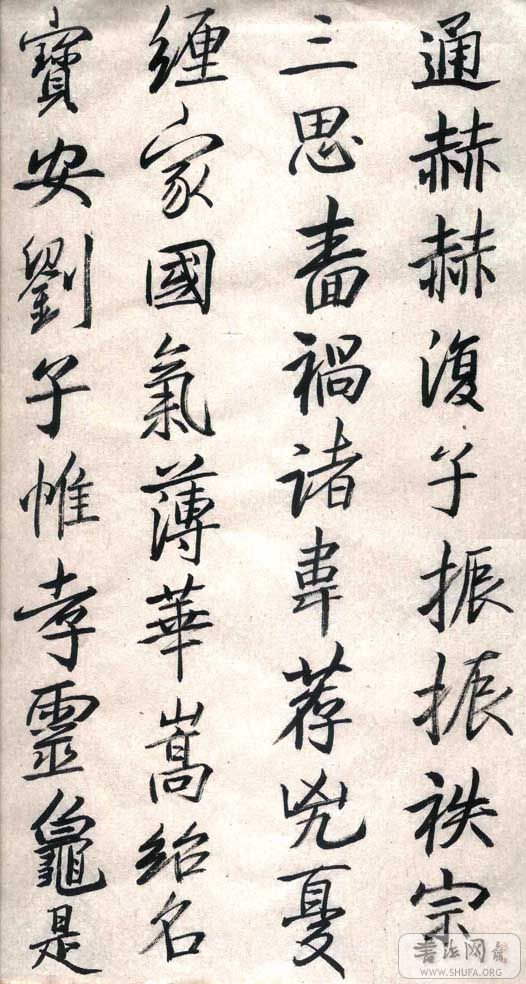 通赫赫復子振振秩宗
三思啬禍诸韦荐兇憂
缠家國氣薄華嵩绍名
寶安劉子惟孝靈龜是
書法网
WWW.SHUFA.ORG